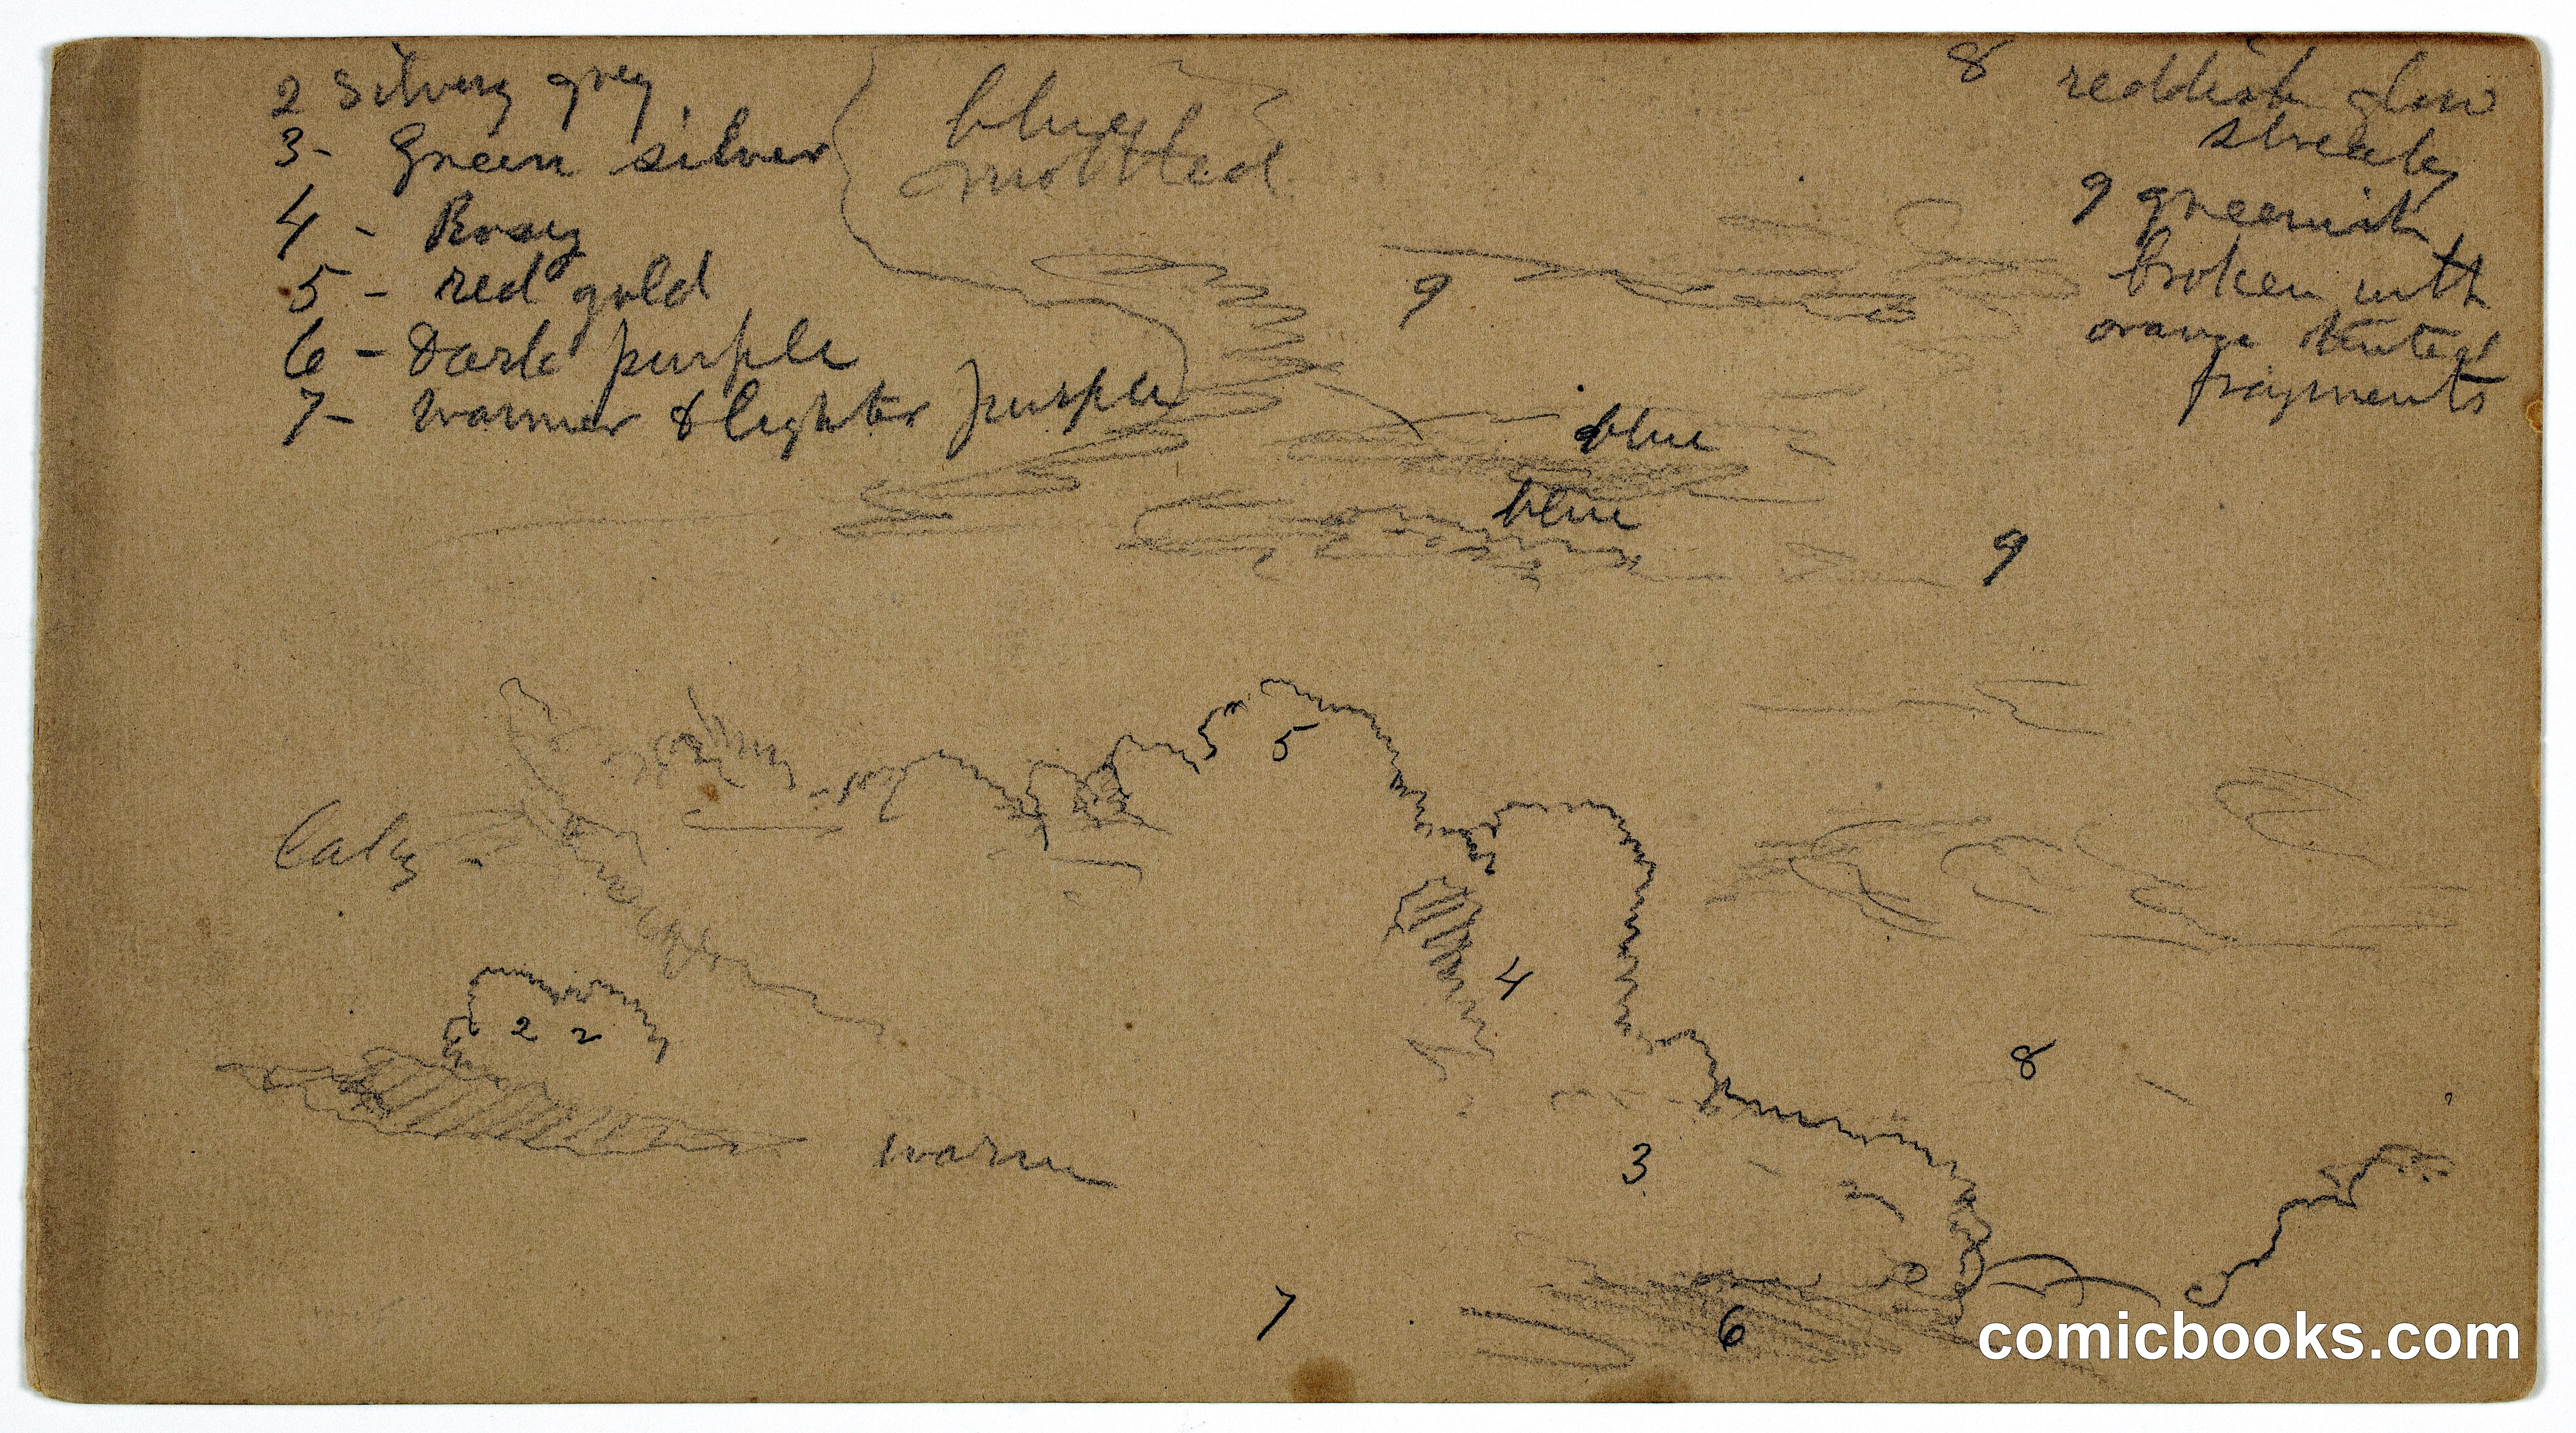 2 Silvery grey
3- Green silver
4 - Rosey
5 - red gold
6 - Dark purple
7- warmer & lighter purple
blue
mottled
8 reddish glow
streaky
9 greenish
broken with
orange tinted
fragments
9
blue
blue
9
5
4
2 2
8
warm
3
7
6
comicbooks.com